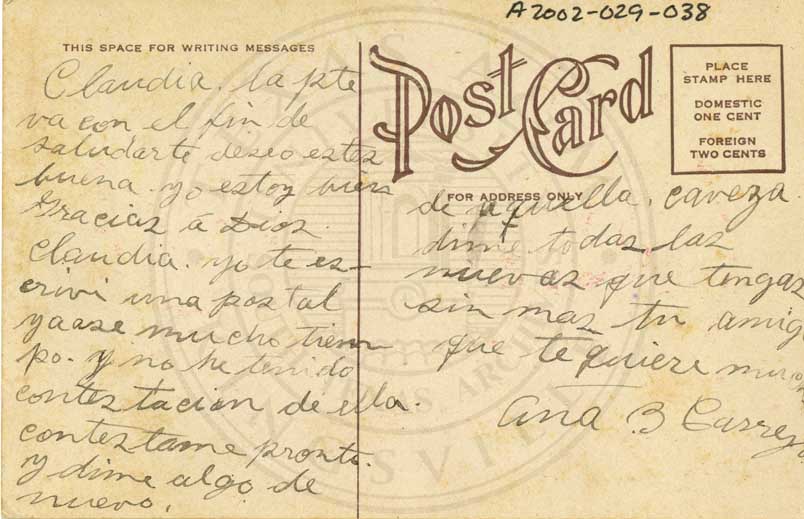 A2002-029-038
THIS SPACE FOR WRITING MESSAGES
Post Card
PLACE
STAMP HERE
DOMESTIC
ONE CENT
FOREIGN
TWO CENTS
FOR ADDRESS ONLY
Claudia. la pte
va con el fin de
saludarte deseo estes
buena. yo estoy buena
Gracias á Dios.
Claudia. yo te es-
crivi una postal
yaase mucho tiem
po. y no he tenido
contestacion de ella.
contestame pronto.
y dime algo de
nuevo.
de aquella. caveza.
dime todas las
nuevas que tengas
sin mas tu amiga
que te quiere mucho
Ana B